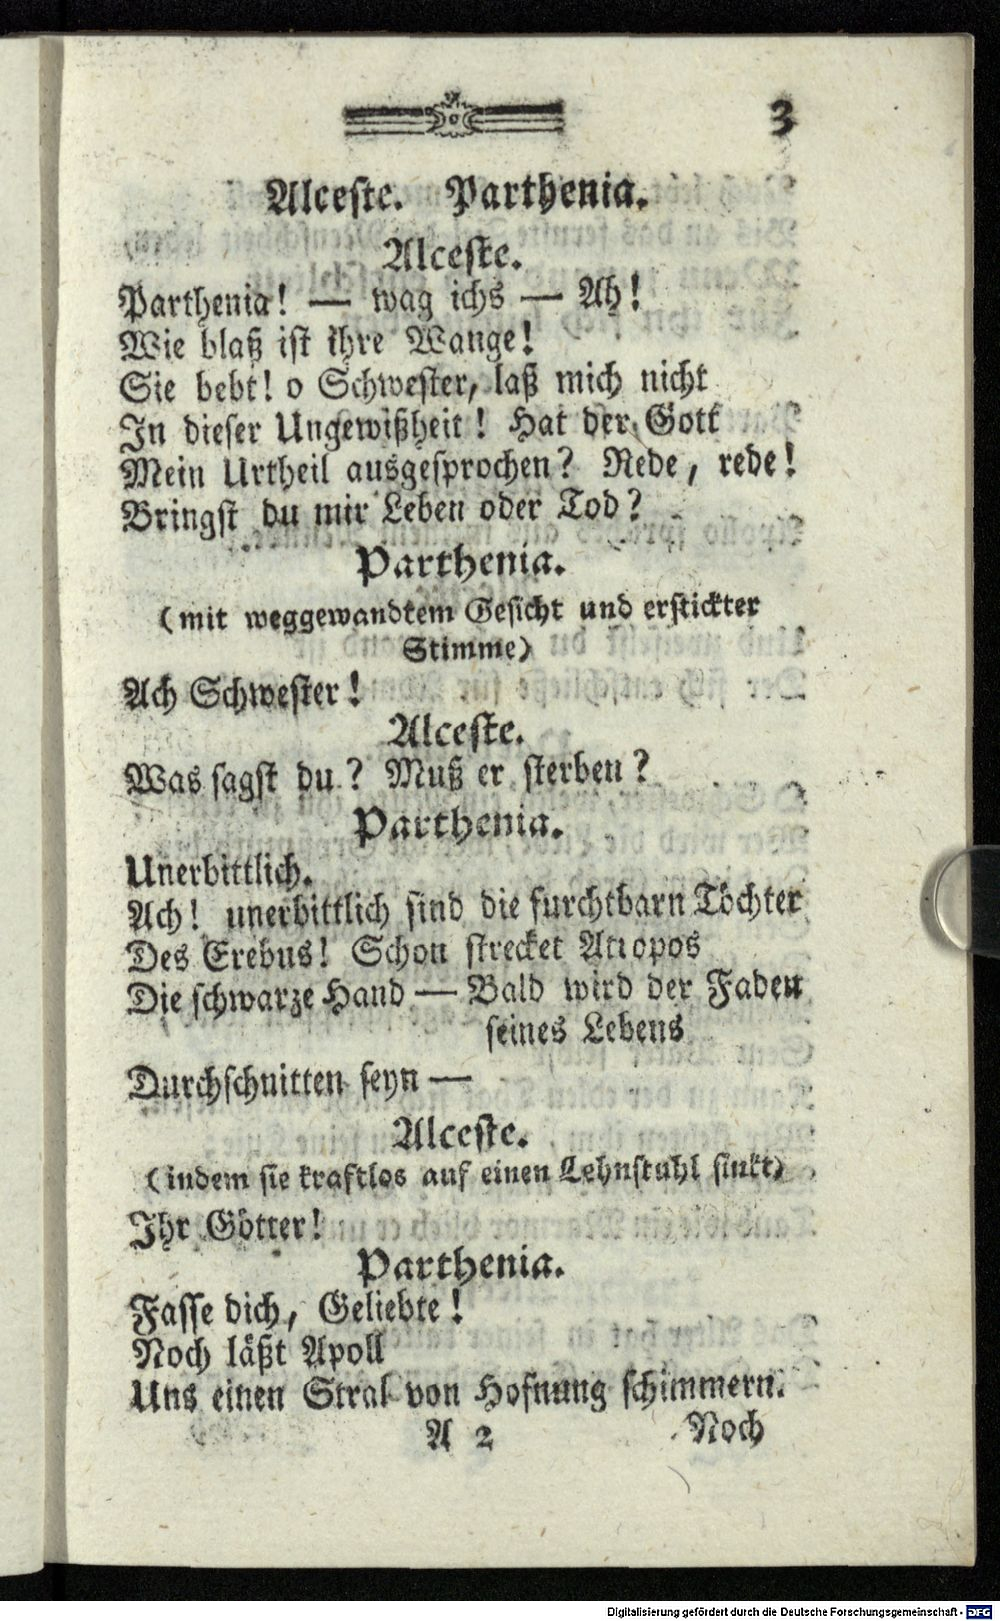 3
Alceste. Parthenia.
Alceste.
Parthenia! — wag ichs — Ah!
Wie blaß ist ihre Wange!
Sie bebt! o Schwester, laß mich nicht
In dieser Ungewißheit! Hat der Gott
Mein Urtheil ausgesprochen? Rede, rede!
Bringst du mir Leben oder Tod?
Parthenia.
(mit weggewandtem Gesicht und erstickter
Stimme)
Ach Schwester!
Alceste.
Was sagst du? Muß er sterben?
Parthenia.
Unerbittlich.
Ach! unerbittlich sind die furchtbarn Töchter
Des Erebus! Schon strecket Atropos
Die schwarze Hand — Bald wird der Faden
seines Lebens
Durchschnitten seyn —
Alceste.
(indem sie kraftlos auf einen Lehnstuhl sinkt)
Ihr Götter!
Parthenia.
Fasse dich, Geliebte!
Noch läßt Apoll
Uns einen Stral von Hofnung schimmern.
A 2 Noch
Digitalisierung gefördert durch die Deutsche Forschungsgemeinschaft - DFG